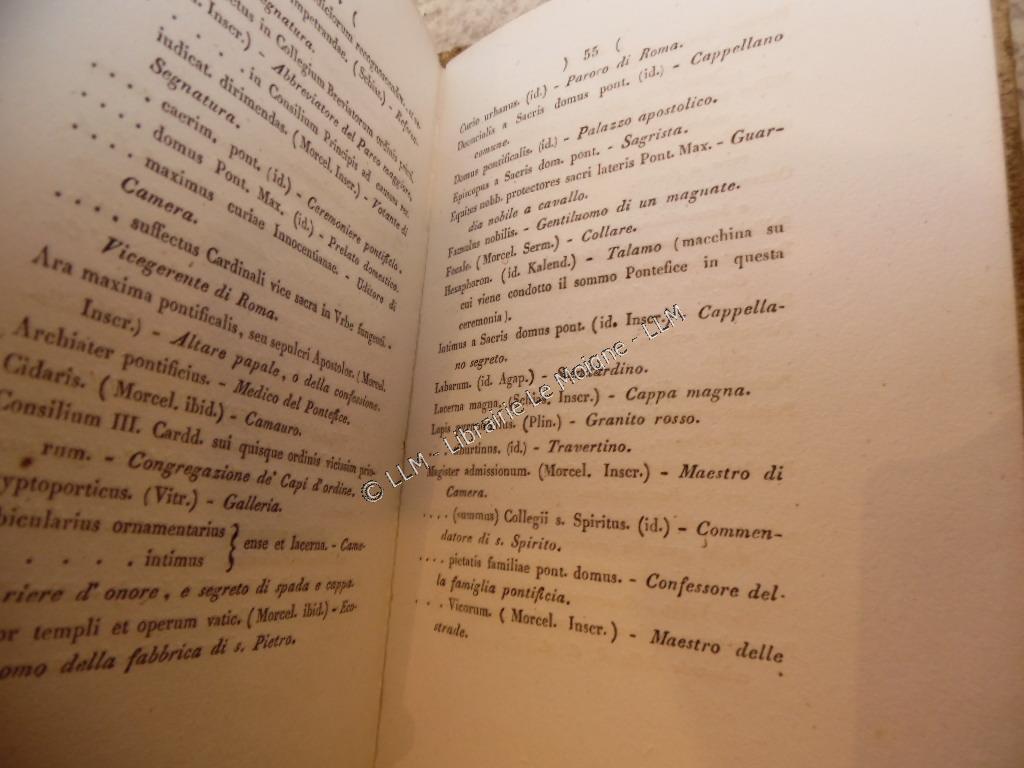 impetrandae. (Schiat.) - Refere-
Segnatura.
in Collegium Breviatorum ordinis primi.
Inscr.) - Abbreviatore del Parco maggiore.
. . . . in Consilium Principis ad caussas
iudicat. dirimendas. (Morcel. Inscr.) - Votante di
Segnatura.
. . . . cacrim. pont. (id.) - Ceremoniere pontificio.
. . . . domus Pont. Max. (id.) - Prelato domestico.
. . . . maximus curiae Innocentianae. - Uditore di
Camera.
. . . . suffectus Cardinali vice sacra in Vrbe fungenti. -
Vicegerente di Roma.
Ara maxima pontificalis, seu sepulcri Apostolor. (Morcel.
Inscr.) - Altare papale, o della confessione.
Archiater pontificius. - Medico del Pontefice.
Cidaris. (Morcel. ibid.) - Camauro.
Consilium III. Cardd. sui quisque ordinis vicissim prio-
rum. - Congregazione de' Capi d'ordine.
yptoporticus. (Vitr.) - Galleria.
bicularius ornamentarius } ense et lacerna. - Came-
. . . . intimus
riere d'onore, e segreto di spada e cappa.
or templi et operum vatic. (Morcel. ibid.) - Eco-
omo della fabbrica di s. Pietro.
) 55 (
Curio urbanus. (id.) - Paroco di Roma.
Decurialis a Sacris domus pont. (id.) - Cappellano
comune.
Domus pontificalis. (id.) - Palazzo apostolico.
Episcopus a Sacris dom. pont. - Sagrista.
Equites nobb. protectores sacri lateris Pont. Max. - Guar-
dia nobile a cavallo.
Famulus nobilis. - Gentiluomo di un magnate.
Focale. (Morcel. Serm.) - Collare.
Hexaphoron. (id. Kalend.) - Talamo (macchina su
cui viene condotto il sommo Pontefice in questa
ceremonia).
Intimus a Sacris domus pont. (id. Inscr.) - Cappella-
no segreto.
Labarum. (id. Agap.) -
Lacerna magna. (Schias. Inscr.) - Cappa magna.
Lapis (Plin.) - Granito rosso.
. . . . tiburtinus. (id.) - Travertino.
Magister admissionum. (Morcel. Inscr.) - Maestro di
Camera.
. . . . (summus) Collegii s. Spiritus. (id.) - Commen-
datore di s. Spirito.
. . . . pietatis familiae pont. domus. - Confessore del-
la famiglia pontificia.
. . . Vicorum. (Morcel. Inscr.) - Maestro delle
strade.
© LLM - Librairie Le Moigne - LLM